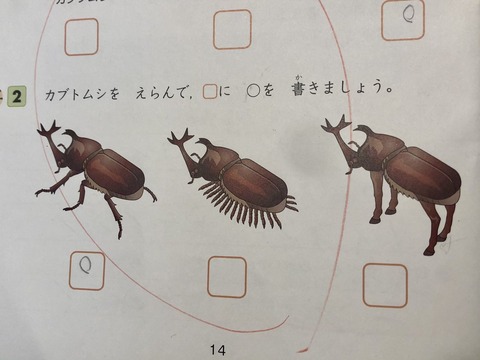 2 カブトムシを えらんで、□に ○を 書きましょう。
か
14